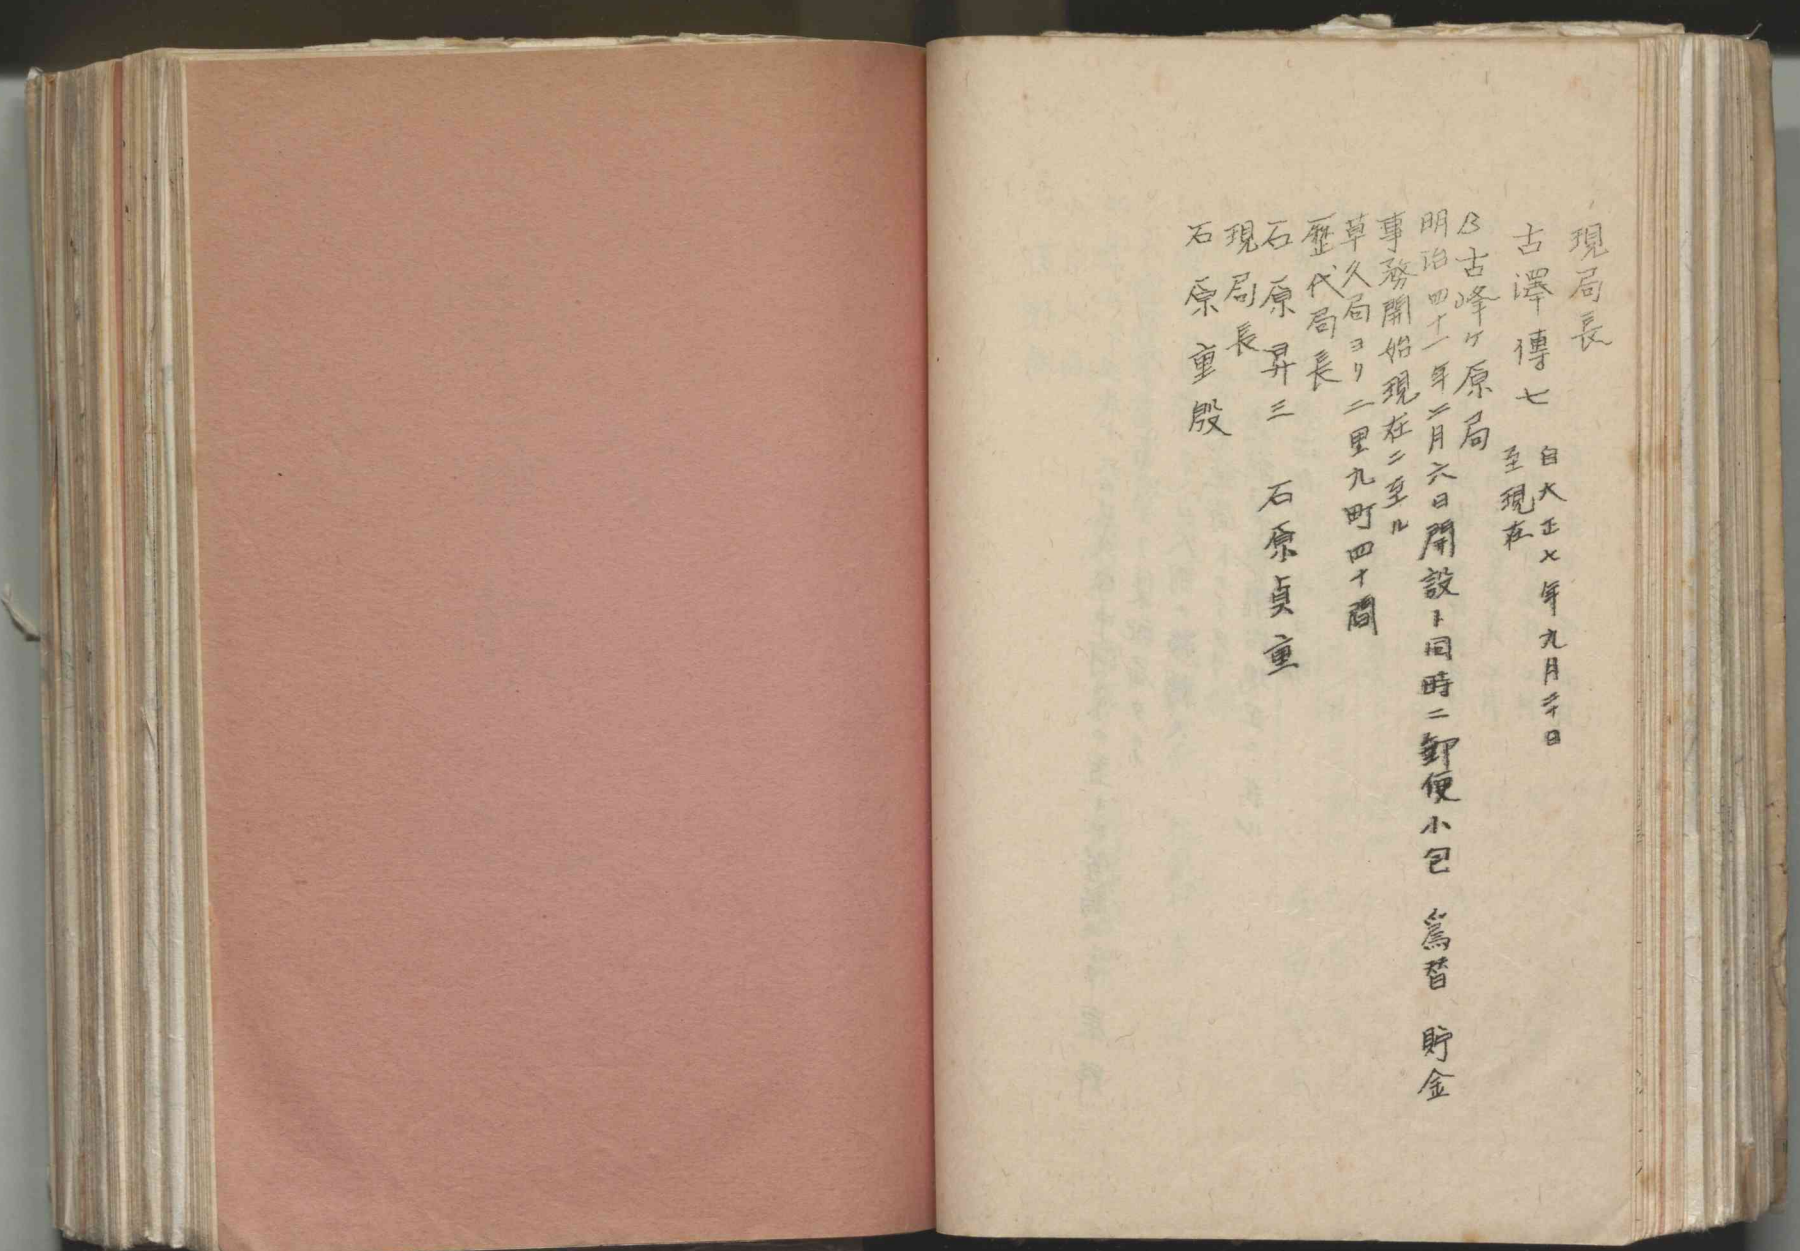 現局長
古澤傳七 自大正七年九月三十日
至現在
B古峰ヶ原局
明治四十一年二月六日開設ト同時ニ郵便小包 為替 貯金
事務開始現在ニ至ル
草久局ヨリ二里九町四十間
歴代局長
石原昇三 石原貞重
現局長
石原重殷